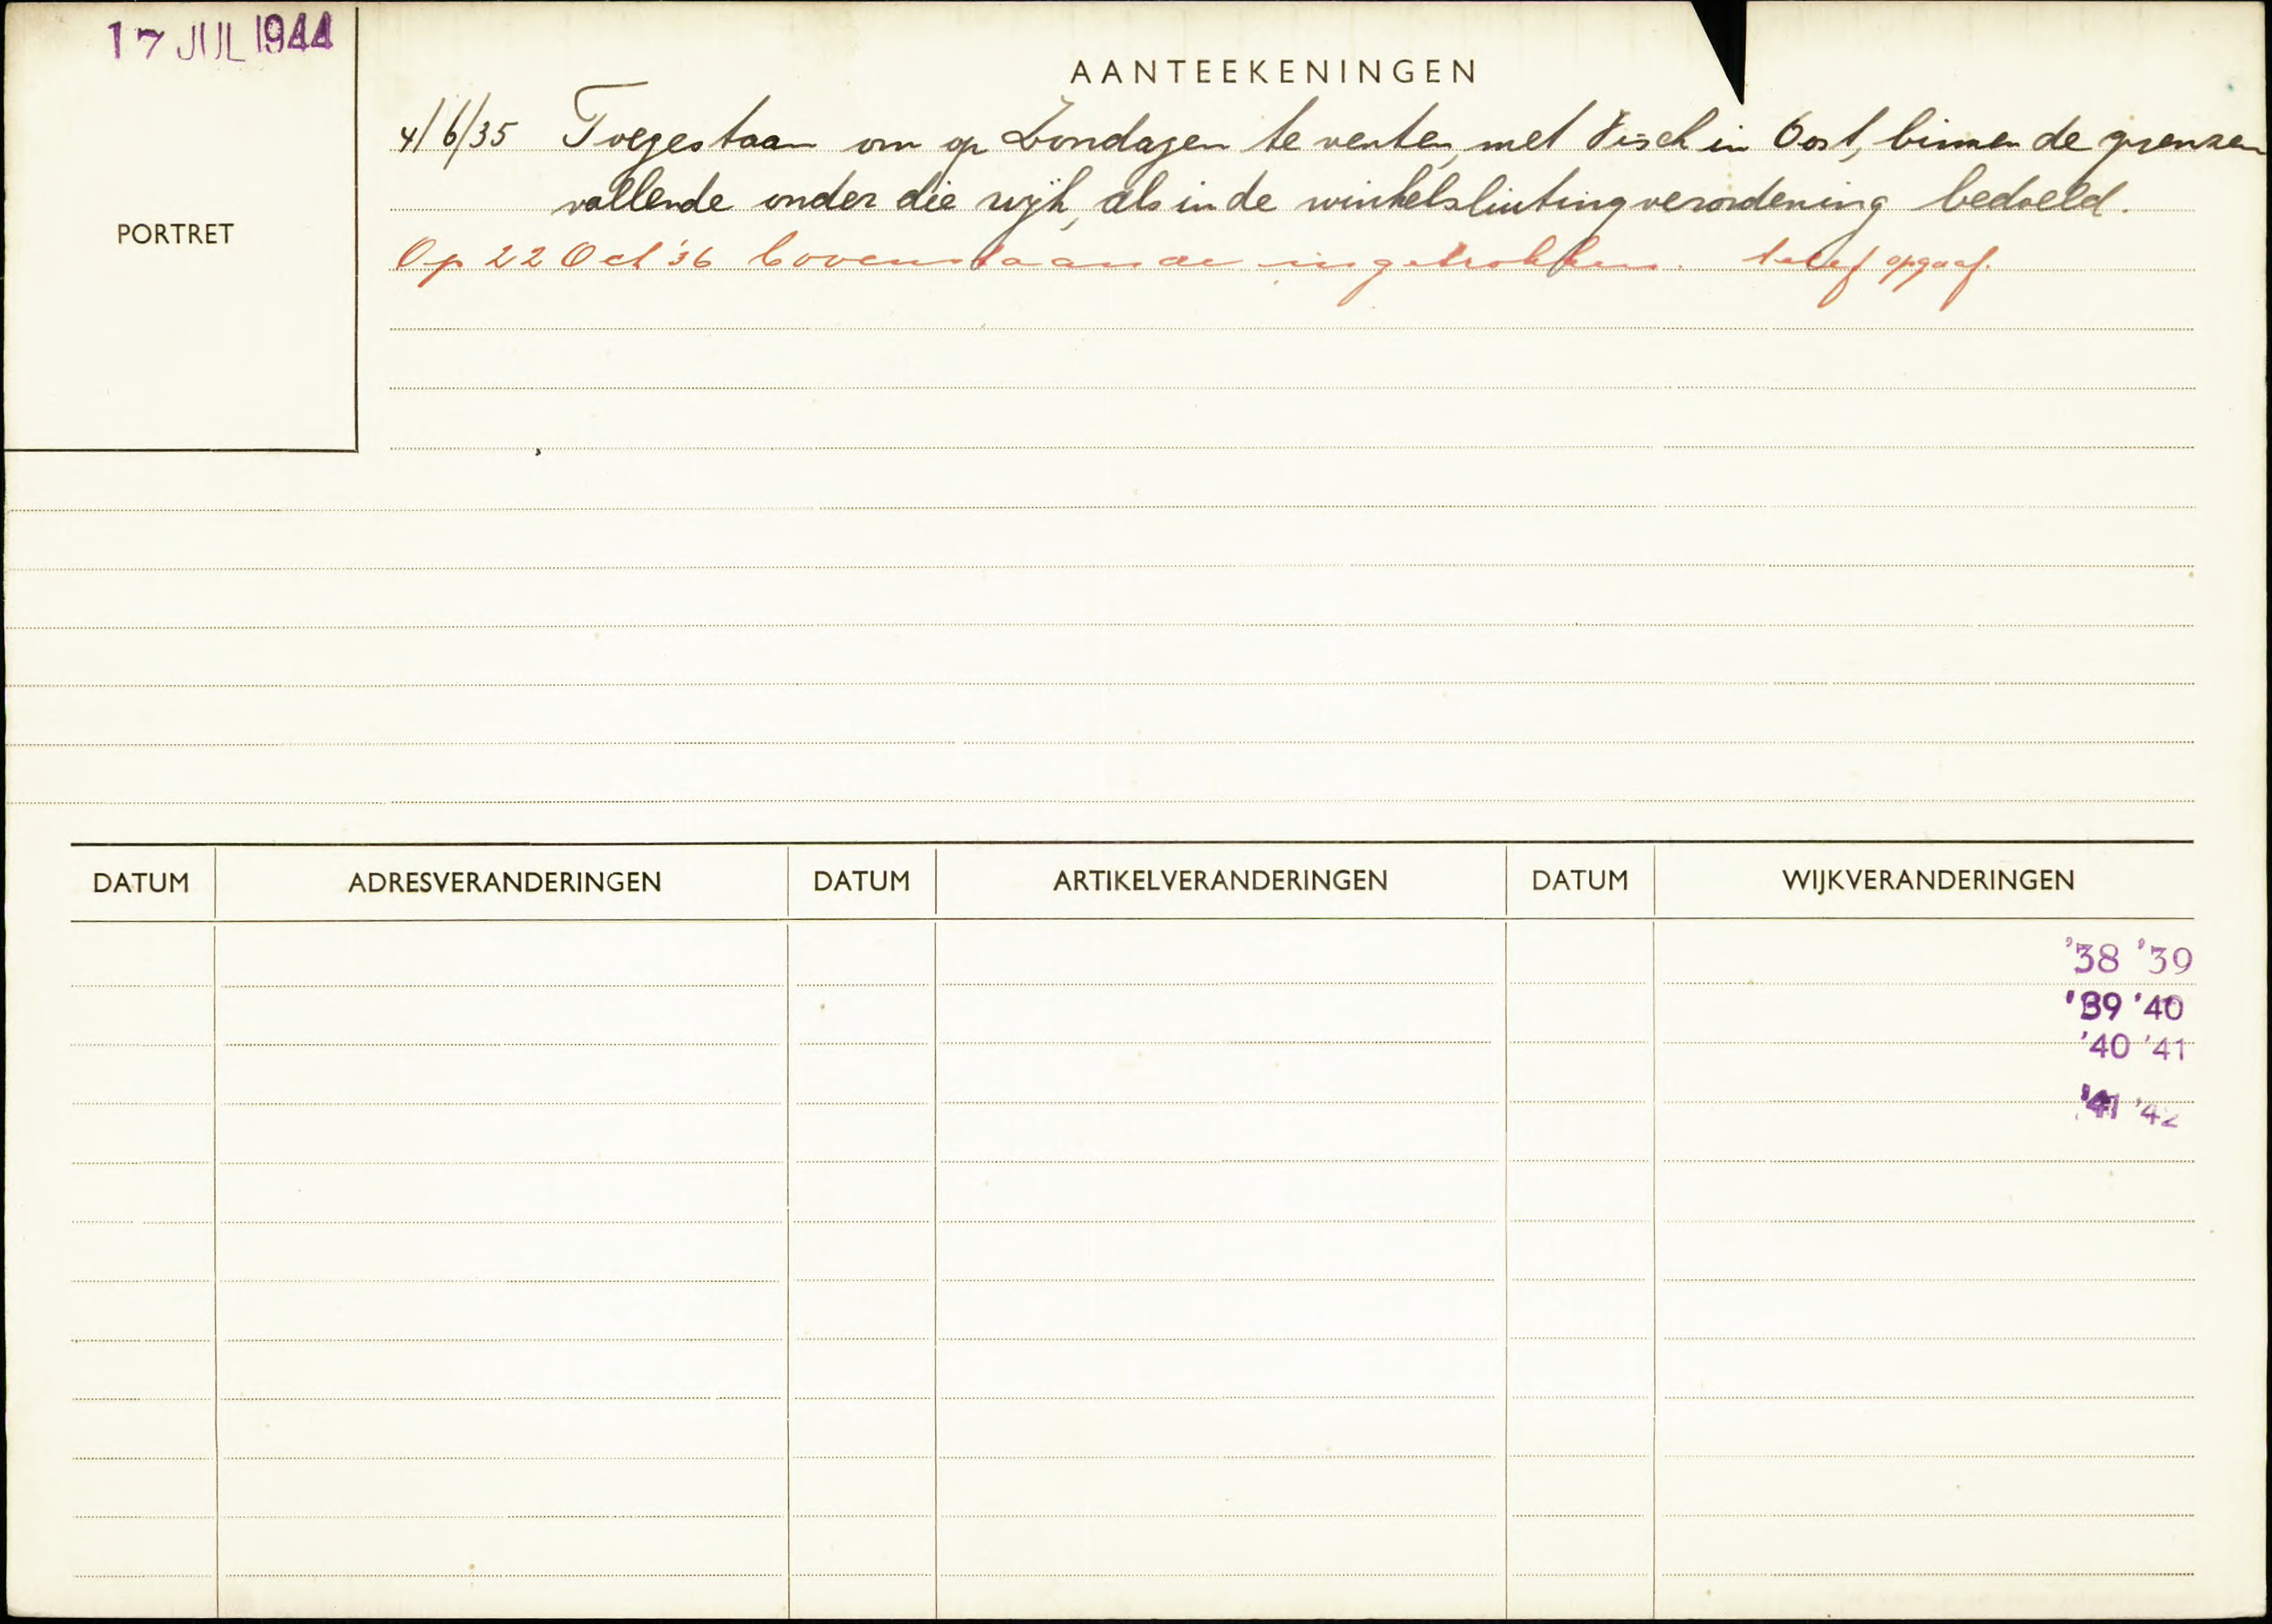 17 JUL 1944
PORTRET
AANTEEKENINGEN
4/6/35 Toegestaan om op Zondagen te venten, met Visch in Oost, binnen de grenzen
vallende onder die wijk, als in de winkelsluitingverordening bedoeld.
Op 22 Oct '36 bovenstaande ingetrokken. telef opgaaf.
DATUM ADRESVERANDERINGEN DATUM ARTIKELVERANDERINGEN DATUM WIJKVERANDERINGEN
'38 '39
'39 '40
'40 '41
'41 '42